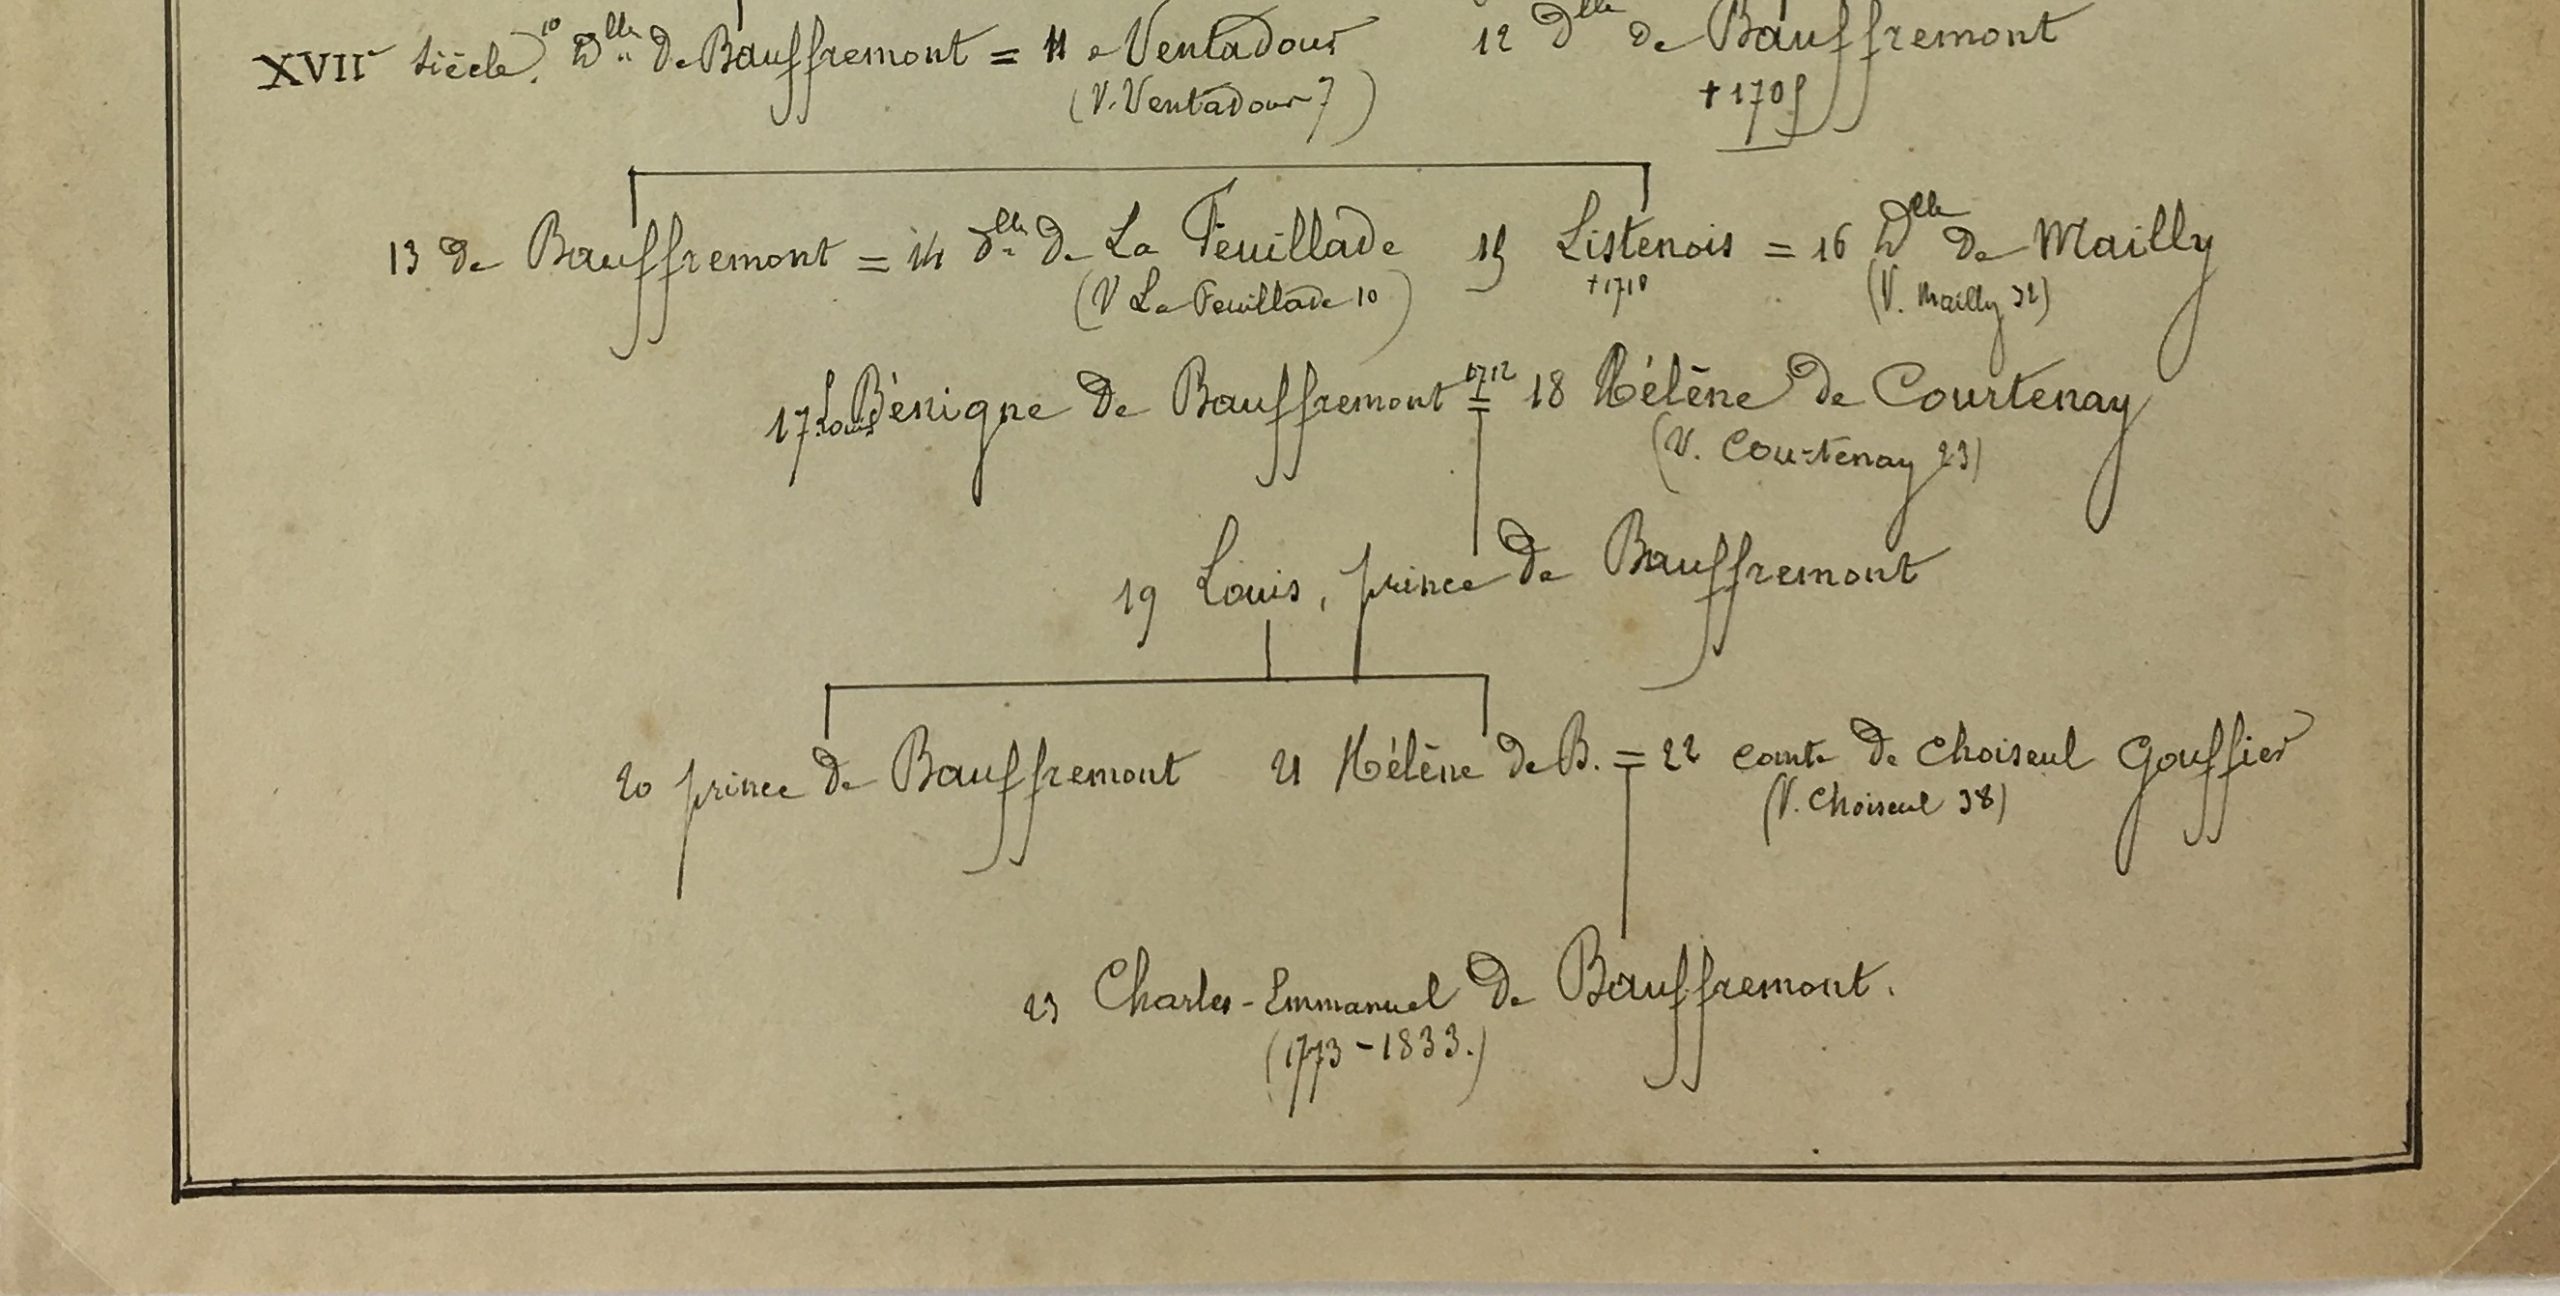 XVIIe siècle. 10 Dlle de Bauffremont = 11 Ventadour 12 Dlle de Bauffremont
(V. Ventadour 7) + 1705
13 de Bauffremont = 14 dlle de La Feuillade 15 Listenois = 16 Dlle de Mailly
(V La Feuillade 10) +1710 (V. Mailly 32)
1712
17 Louis Bénigne de Bauffremont = 18 Hélène de Courtenay
(V. Courtenay 23)
19 Louis, prince de Bauffremont
20 prince de Bauffremont 21 Hélène de B. = 22 comte de Choiseul Gouffier
(V. Choiseul 38)
23 Charles-Emmanuel de Bauffremont.
(1773-1833.)